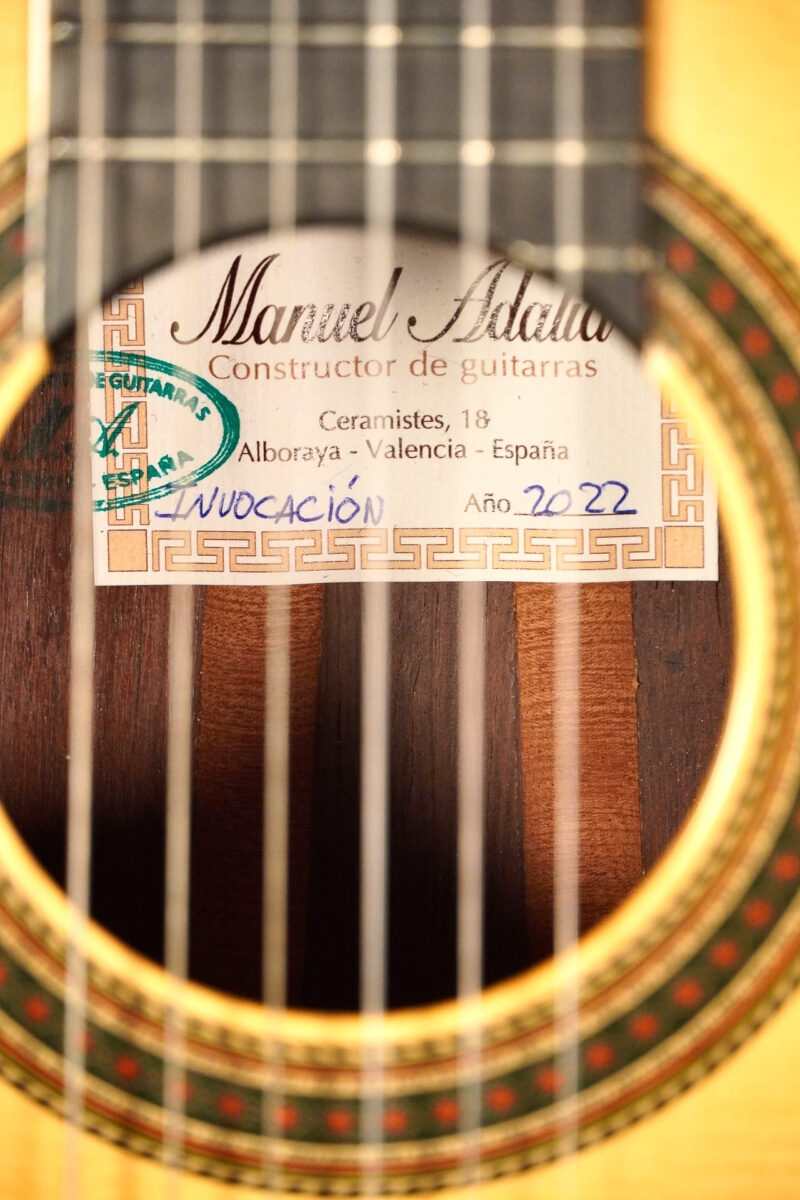 Manuel Adalid
Constructor de guitarras
Ceramistes, 18
Alboraya - Valencia - España
INVOCACIÓN Año 2022
DE GUITARRAS
ESPAÑA